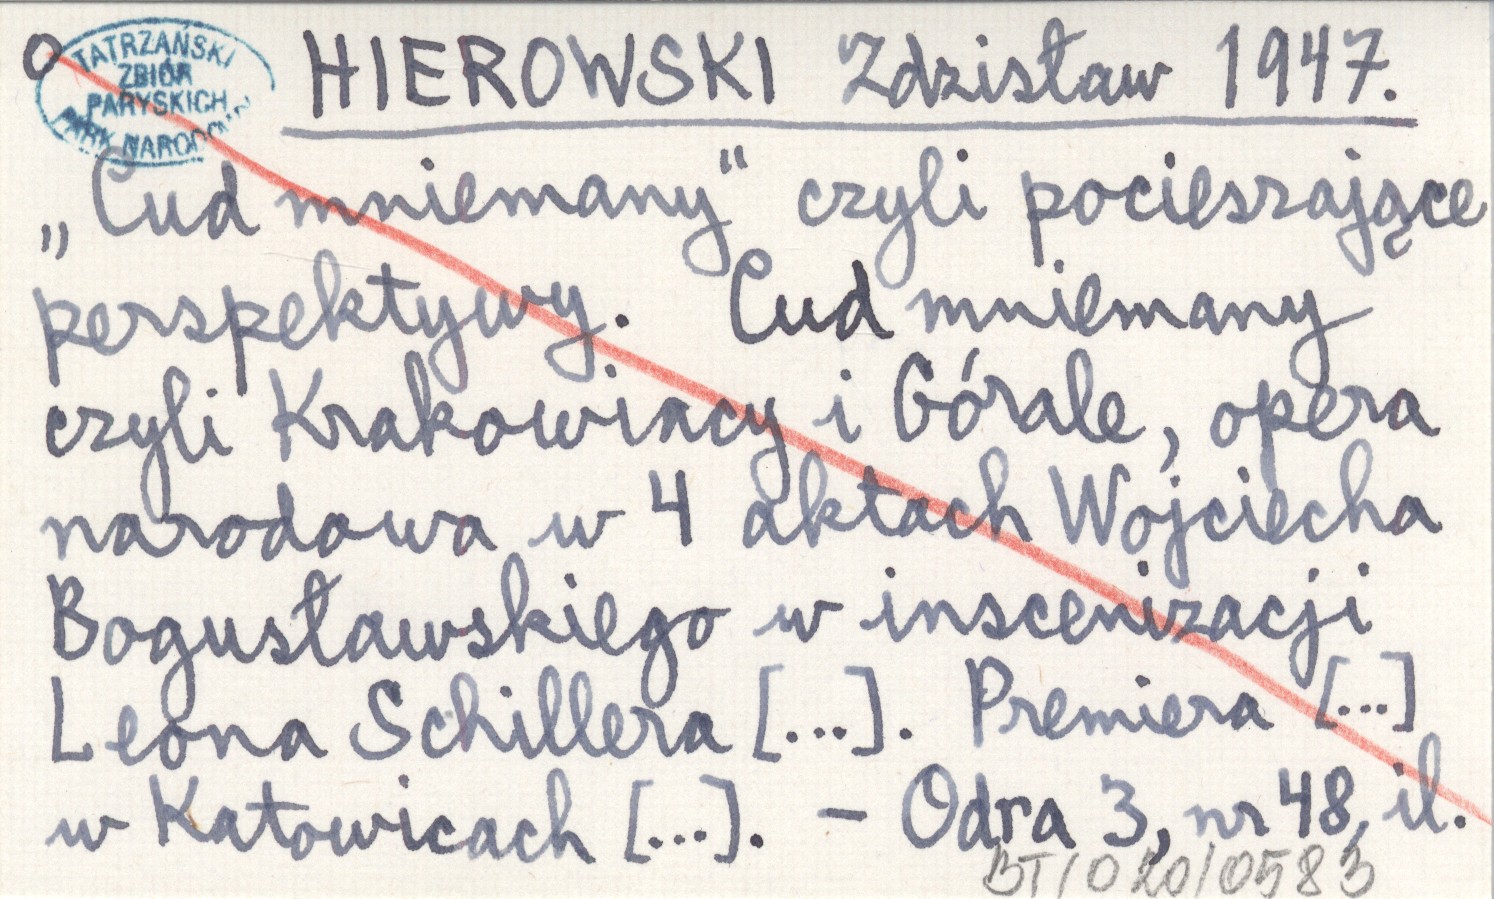 O
TATRZAŃSKI
ZBIÓR
PARYSKICH
PARK NARODOWY
HIEROWSKI Zdzisław 1947.
„Cud mniemany" czyli pocieszające
perspektywy. Cud mniemany
czyli Krakowiacy i Górale, opera
narodowa w 4 aktach Wojciecha
Bogusławskiego w inscenizacji
Leona Schillera [...]. Premiera [...]
w Katowicach [...]. – Odra 3, nr 48, il.
BT/020/0583